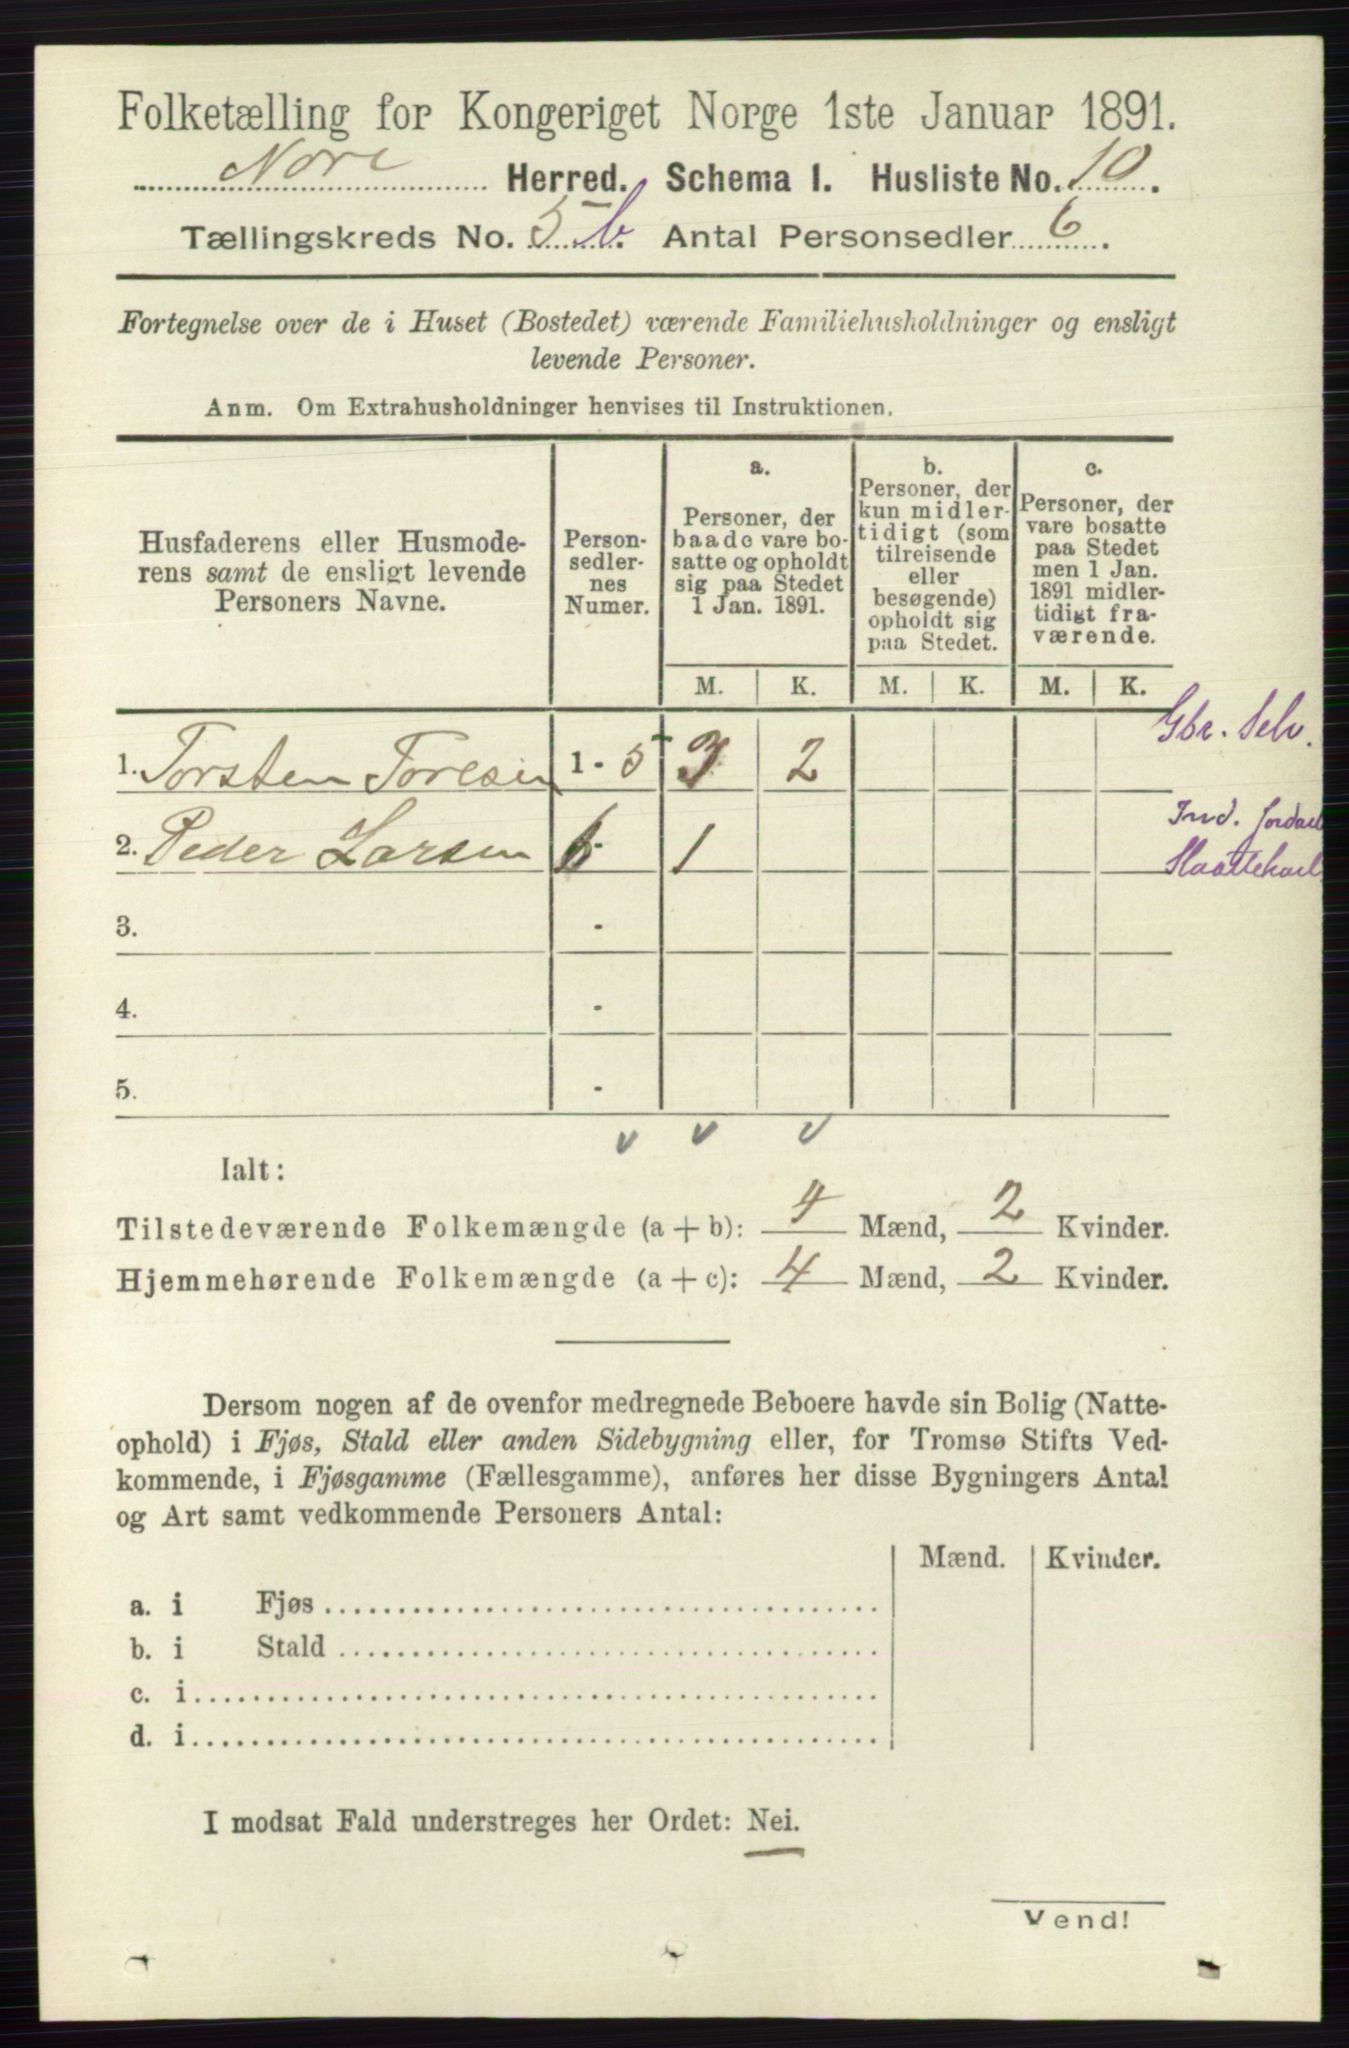 Folketælling for Kongeriget Norge 1ste Januar 1891.
Nore Herred. Schema I. Husliste No. 10.
Tællingskreds No. 5 b. Antal Personsedler 6.
Fortegnelse over de i Huset (Bostedet) værende Familiehusholdninger og ensligt
levende Personer.
Anm. Om Extrahusholdninger henvises til Instruktionen.
Husfaderens eller Husmode-
rens samt de ensligt levende
Personers Navne.
Person-
sedler-
nes
Numer.
a.
Personer, der
baade vare bo-
satte og opholdt
sig paa Stedet
1 Jan. 1891.
b.
Personer, der
kun midler-
tidigt (som
tilreisende
eller
besøgende)
opholdt sig
paa Stedet.
c.
Personer, der
vare bosatte
paa Stedet
men 1 Jan.
1891 midler-
tidigt fra-
værende.
M. K. M. K. M. K.
1. Torsten Toresen 1 - 5 3 2 Gbr. Selv.
2. Peder Larsen 6 - 1 Ind. Jordarb
Slaattekarl
3. -
4. -
5. -
v v v
Ialt:
Tilstedeværende Folkemængde (a + b): 4 Mænd, 2 Kvinder.
Hjemmehørende Folkemængde (a + c): 4 Mænd, 2 Kvinder.
Dersom nogen af de ovenfor medregnede Beboere havde sin Bolig (Natte-
ophold) i Fjøs, Stald eller anden Sidebygning eller, for Tromsø Stifts Ved-
kommende, i Fjøsgamme (Fællesgamme), anføres her disse Bygningers Antal
og Art samt vedkommende Personers Antal:
Mænd. Kvinder.
a. i Fjøs
b. i Stald
c. i
d. i
I modsat Fald understreges her Ordet: Nei.
Vend!